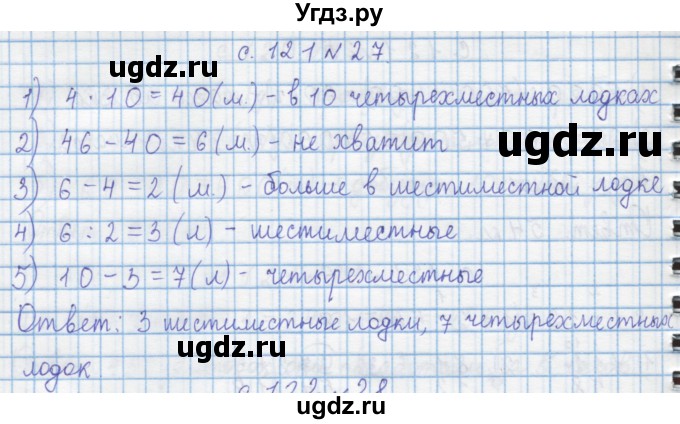 Угдз.ру
с. 121 № 27
1) 4 · 10 = 40 (м.) - в 10 четырехместных лодках
2) 46 - 40 = 6 (м.) - не хватит
3) 6 - 4 = 2 (м.) - больше в шестиместной лодке
4) 6 : 2 = 3 (л) - шестиместные
5) 10 - 3 = 7 (л) - четырехместные
Ответ: 3 шестиместные лодки, 7 четырехместных
лодок
с. 122 № 28
ugdz.ru
ugdz.ru
ugdz.ru
ugdz.ru
ugdz.ru